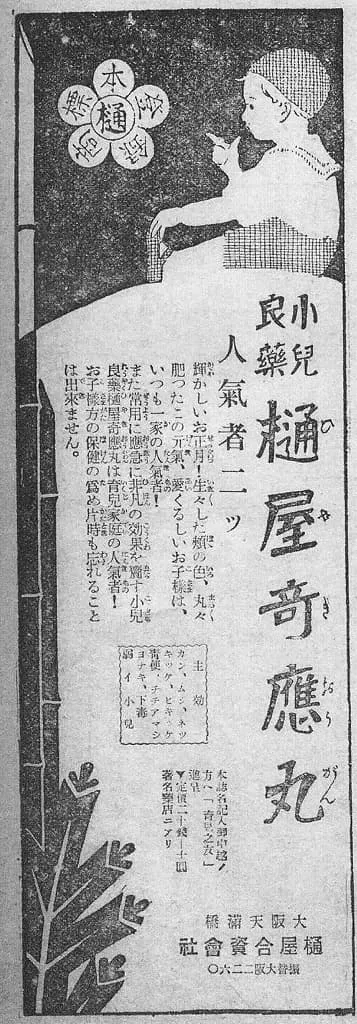 本登錄商標
樋
小兒
良藥
樋屋奇應丸
ひやきおうがん
人氣者二ッ
輝かしいお正月!生々した頬の色、丸々
肥つたこの元氣、愛くるしいお子樣は、
いつも一家の人氣者!
また常用に應急に非凡の効果を齎す小兒
良藥樋屋奇應丸は育兒家庭の人氣者!
お子樣方の保健の爲め片時も忘れること
は出來ません。
主効
カン、ムシ、ネツ
キツケ、ヒキツケ
靑便、チチアマシ
ヨナキ、下毒
弱イ小兒
本誌名記入御申越ノ
方ヘ「育兒之友」
進呈
▼定價二十錢―十圓
著名藥店ニアリ
大阪天滿橋
樋屋合資會社
振替大阪二二六〇